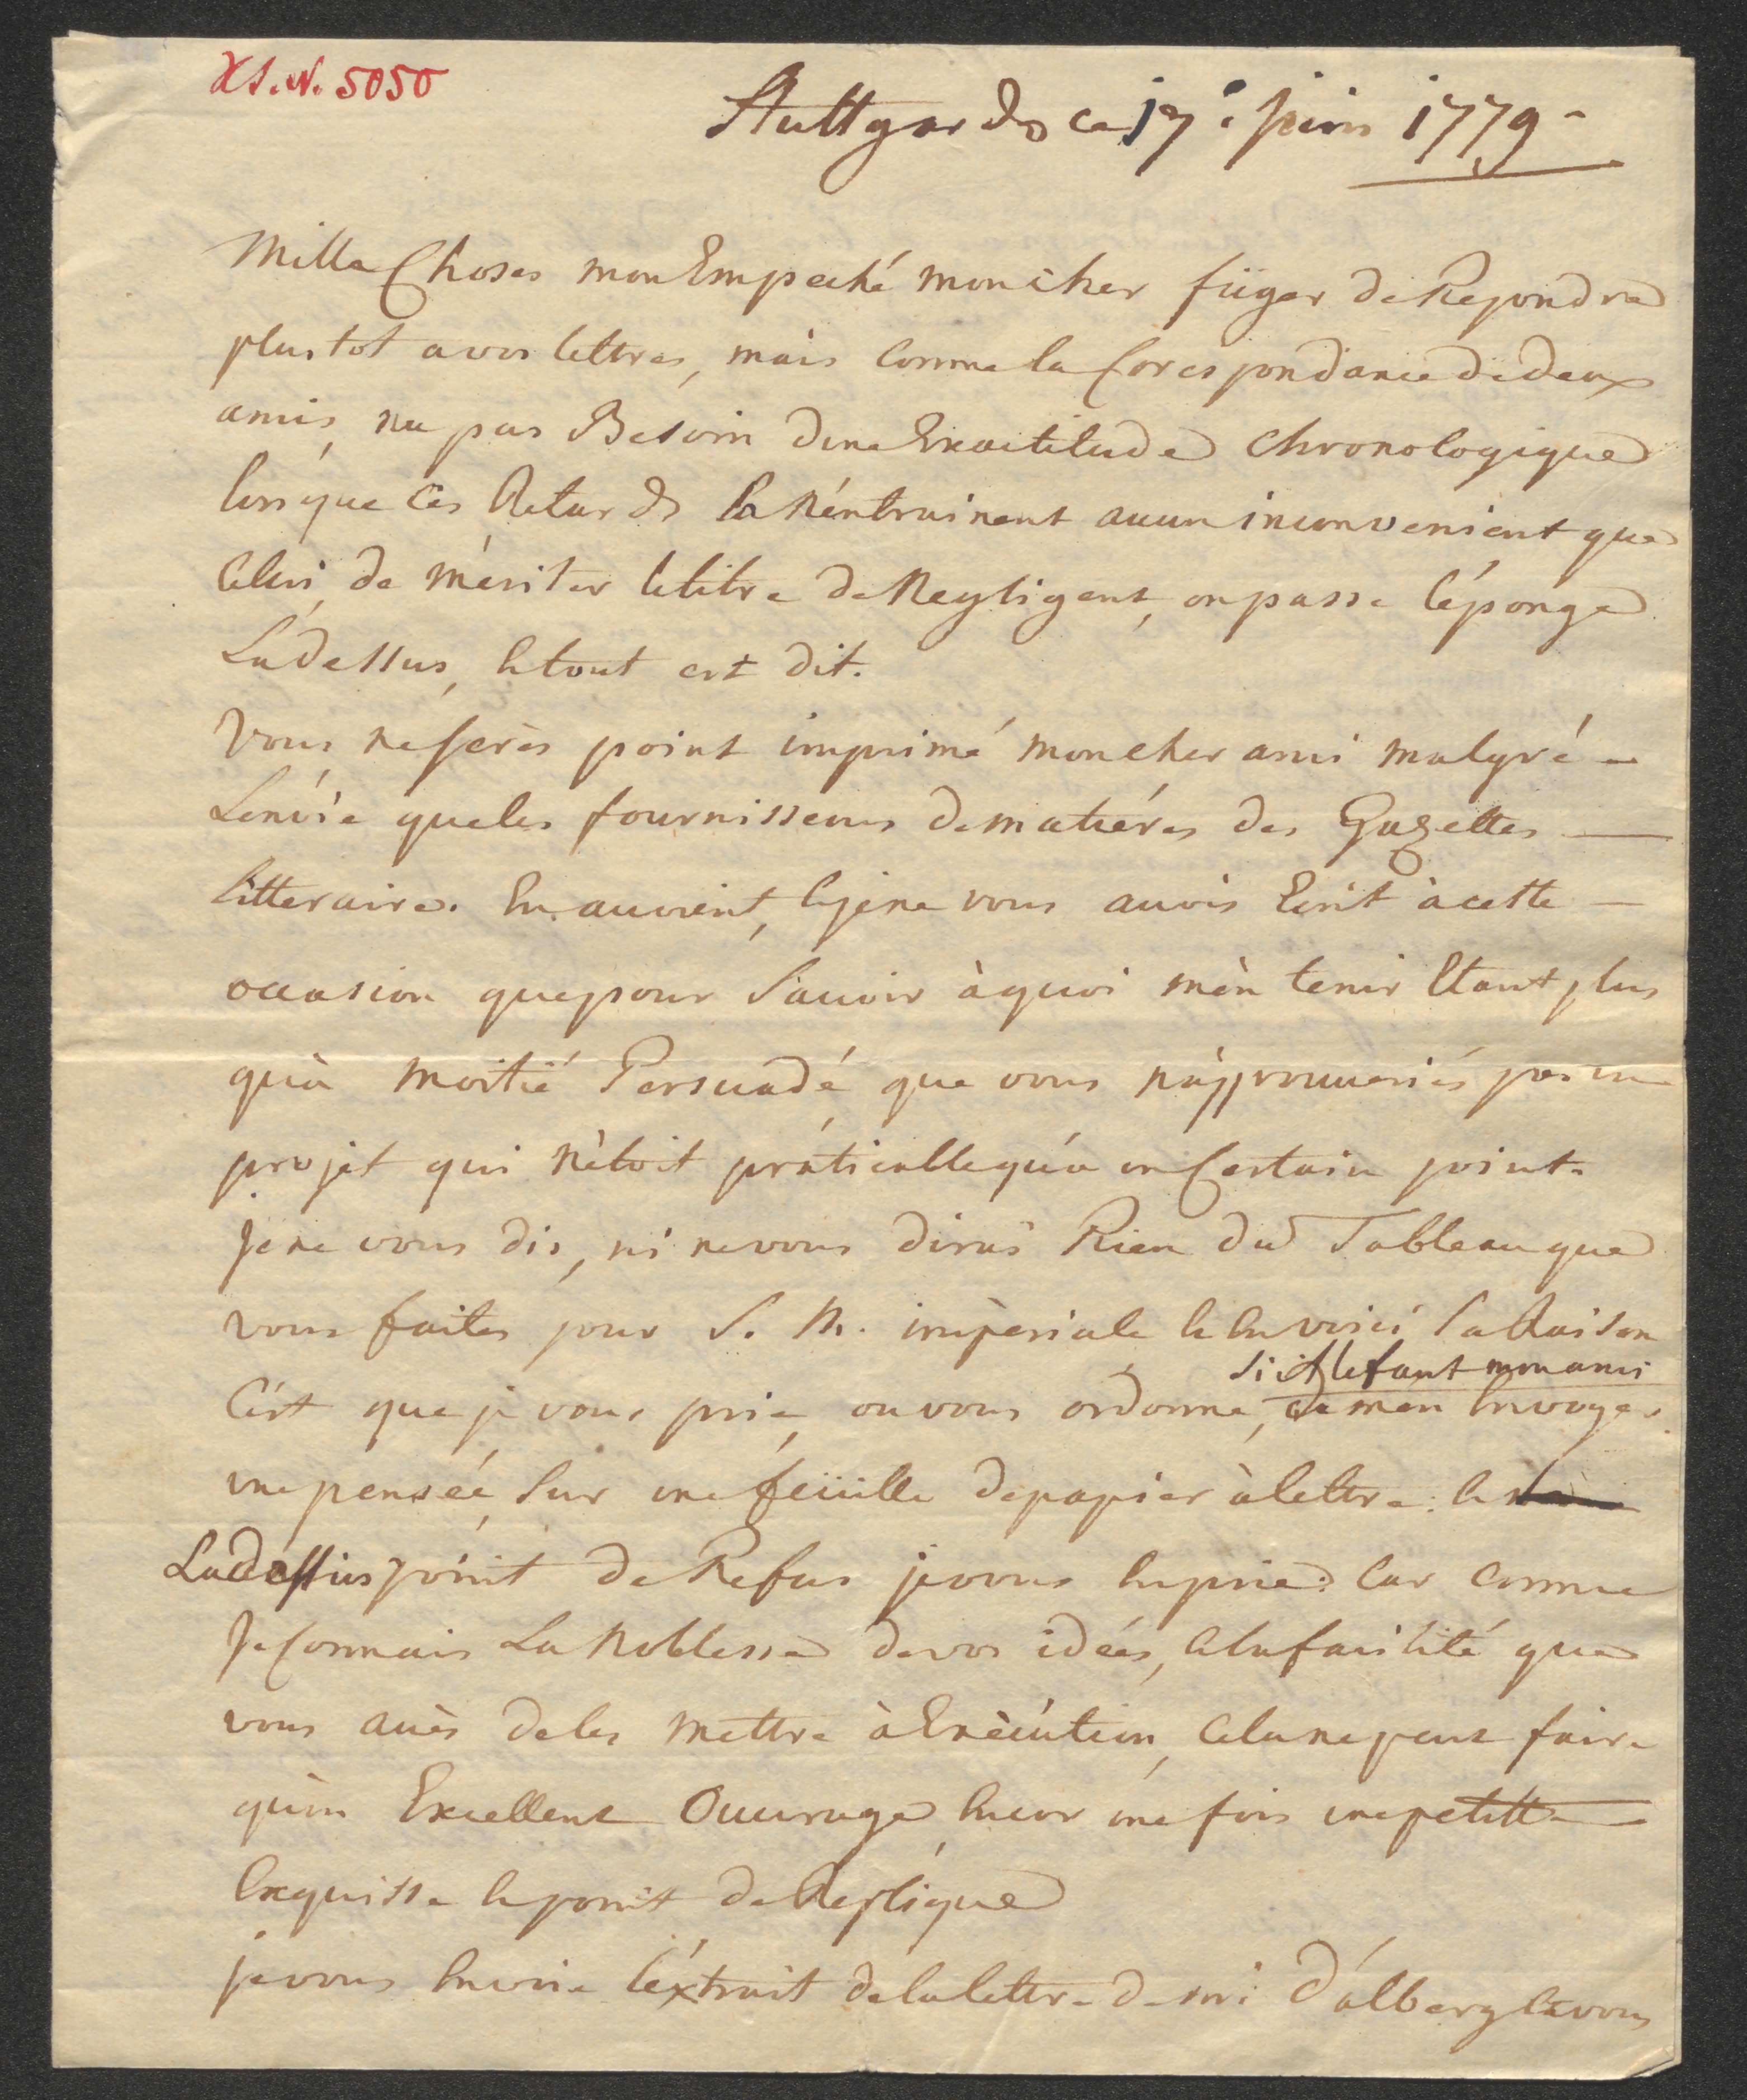 H.I.N. 5050
Stuttgardt ce 17: juin 1779.
Mille Choses mon Empeché mon cher füger de Repondre
plustot a vos lettres, mais Comme la Corespondance de deux
amis, na pas Besoin dune Exactitude Chronologique
lors'que ces Retards n'éntrainent aucun inconvenient que
Celui de mériter le titre de Negligent, on passe l'éponge
La'dessus, et tout est dit.
Vous ne serès point imprimé mon cher ami malgré
L'envie que les fournisseurs de matiéres des Gazettes
litteraire. En auroient, et je ne vous avois Ecrit à cette
occasion que pour Savoir à quoi m'èn tenir Etant plus
qu'à moitié Persuadé que vous n'approuveriés pas un
projet qui n'ètoit práticable qu'a un Certain point.
Je ne vous dis, ni ne vous dirais Rien du Tableau que
vous faites pour S. M. impèriale et En voici la Raison
si il le faut mon ami
C'ést que je vous prie, ou vous ordonne, de m'en Envoyer
une pensée, Sur une feüille de papier à lettre. et
La dessus point de Refus je vous En prie. Car comme
Je Connais La Noblesse de vos idées, et la facilité que
vous avès de les mettre à Exècùtion, Cela ne peut faire
qu'ùn Excellent Ouvrage, Encor une fois une petitte
Exquisse et point de Replique
je vous Envoie l'éxtrait de la lettre de mr: d'álberg et a vous